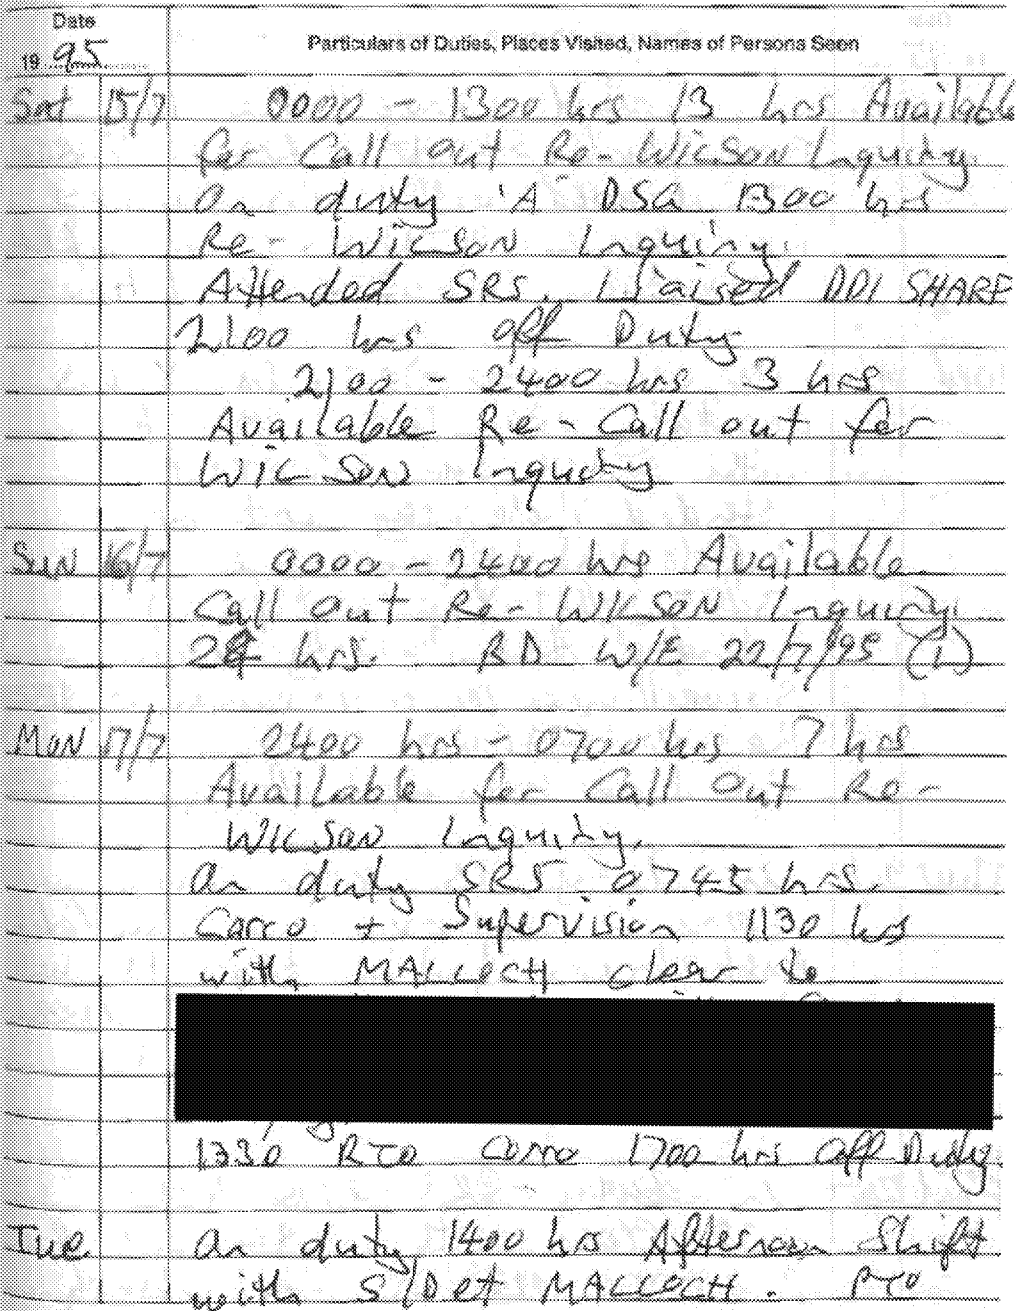 Date
19 95
Particulars of Duties, Places Visited, Names of Persons Seen
Sat 15/7 0000 - 1300 hrs 13 hrs Available
for Call out Re- WILSON Inquiry.
On duty 'A' DSG 1300 hrs
Re- WILSON Inquiry.
Attended SRS. Liaised DDI SHARP
2100 hrs off Duty
2100 - 2400 hrs 3 hrs
Available Re- Call out for
WILSON Inquiry
Sun 16/7 0000 - 2400 hrs Available
Call Out Re- WILSON Inquiry.
24 hrs. RD W/E 22/7/95 (1)
Mon 17/7 2400 hrs - 0700 hrs 7 hrs
Available for Call Out Re-
WILSON Inquiry.
On duty SRS 0745 hrs.
Corro + Supervision 1130 hrs
with MALLOCH clear to
1330 RTO Corro 1700 hrs Off Duty.
Tue On duty 1400 hrs Afternoon Shift
with S/Det MALLOCH. PTO